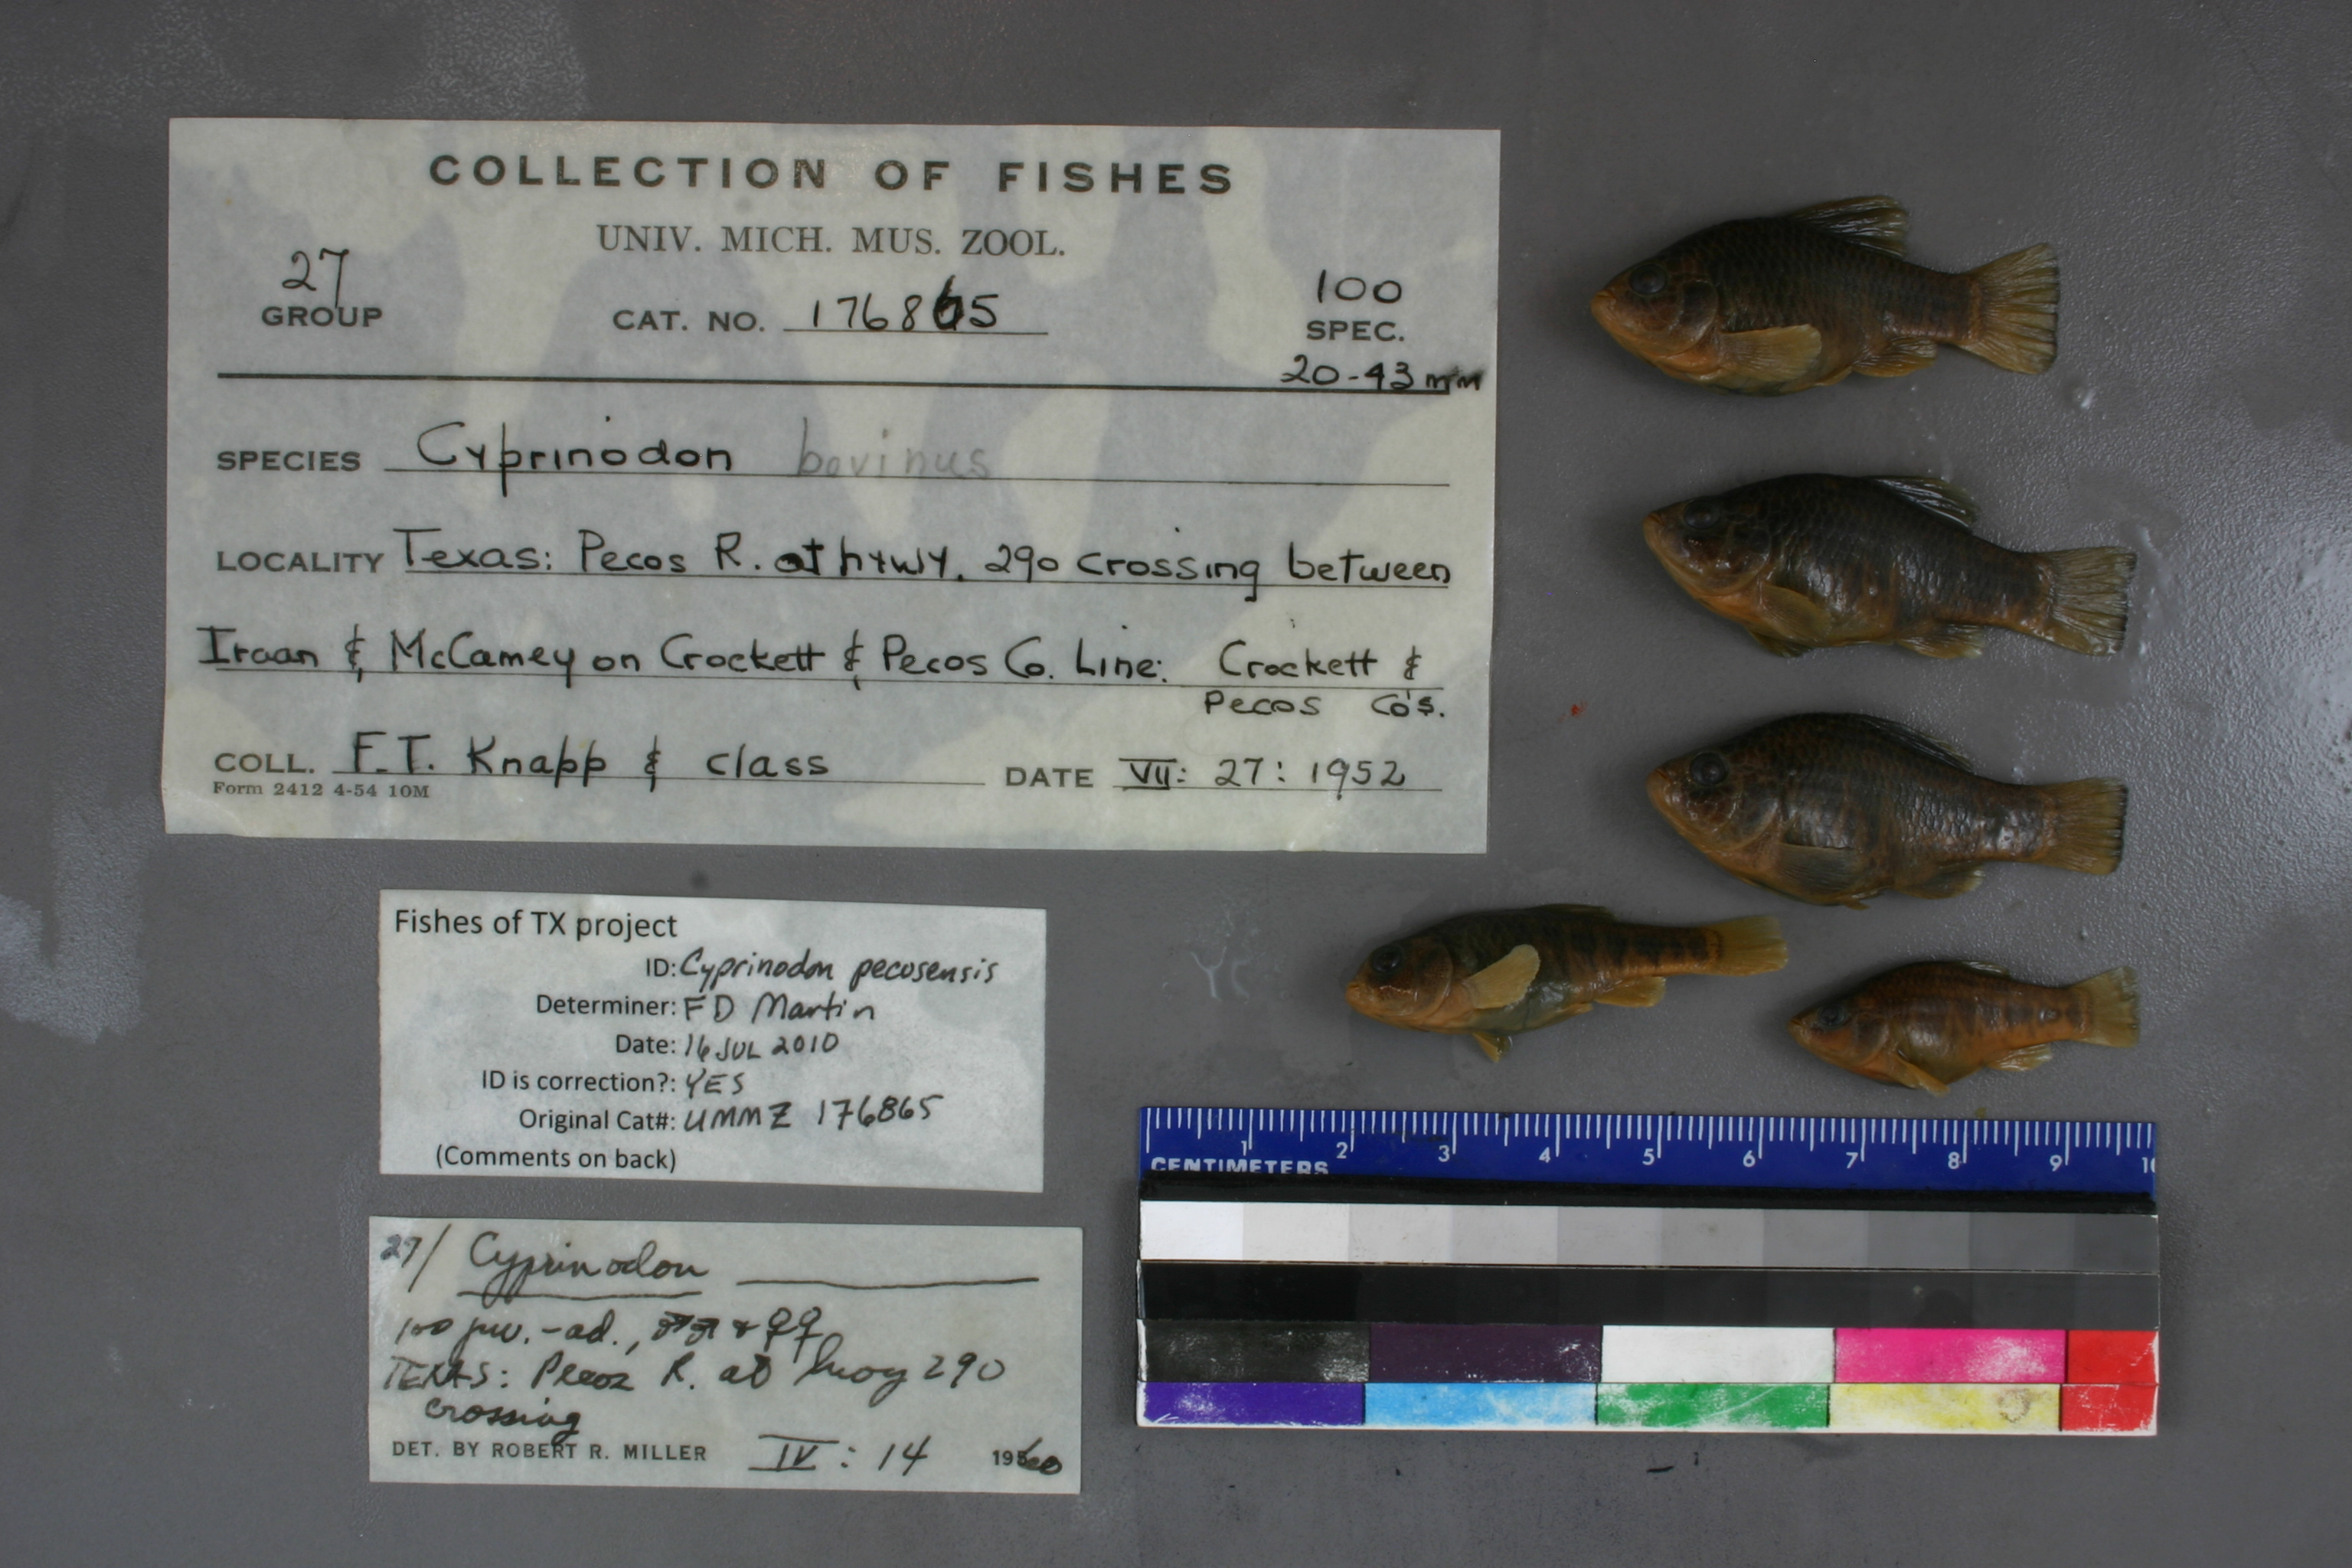 COLLECTION OF FISHES
UNIV. MICH. MUS. ZOOL.
27
GROUP
CAT. NO. 176865
100
SPEC.
20-43 mm
SPECIES Cyprinodon bovinus
LOCALITY Texas: Pecos R. at hywy. 290 crossing between
Iraan & McCamey on Crockett & Pecos Co. Line: Crockett &
Pecos Co's.
COLL. F.T. Knapp & class DATE VII: 27: 1952
Form 2412 4-54 10M
Fishes of TX project
ID: Cyprinodon pecosensis
Determiner: FD Martin
Date: 16 JUL 2010
ID is correction?: YES
Original Cat#: UMMZ 176865
(Comments on back)
27/ Cyprinodon
100 juv.-ad., ♂♂ & ♀♀
TEXAS: Pecos R. at hwy 290
crossing
DET. BY ROBERT R. MILLER IV: 14 1960
1 2 3 4 5 6 7 8 9 10
CENTIMETERS